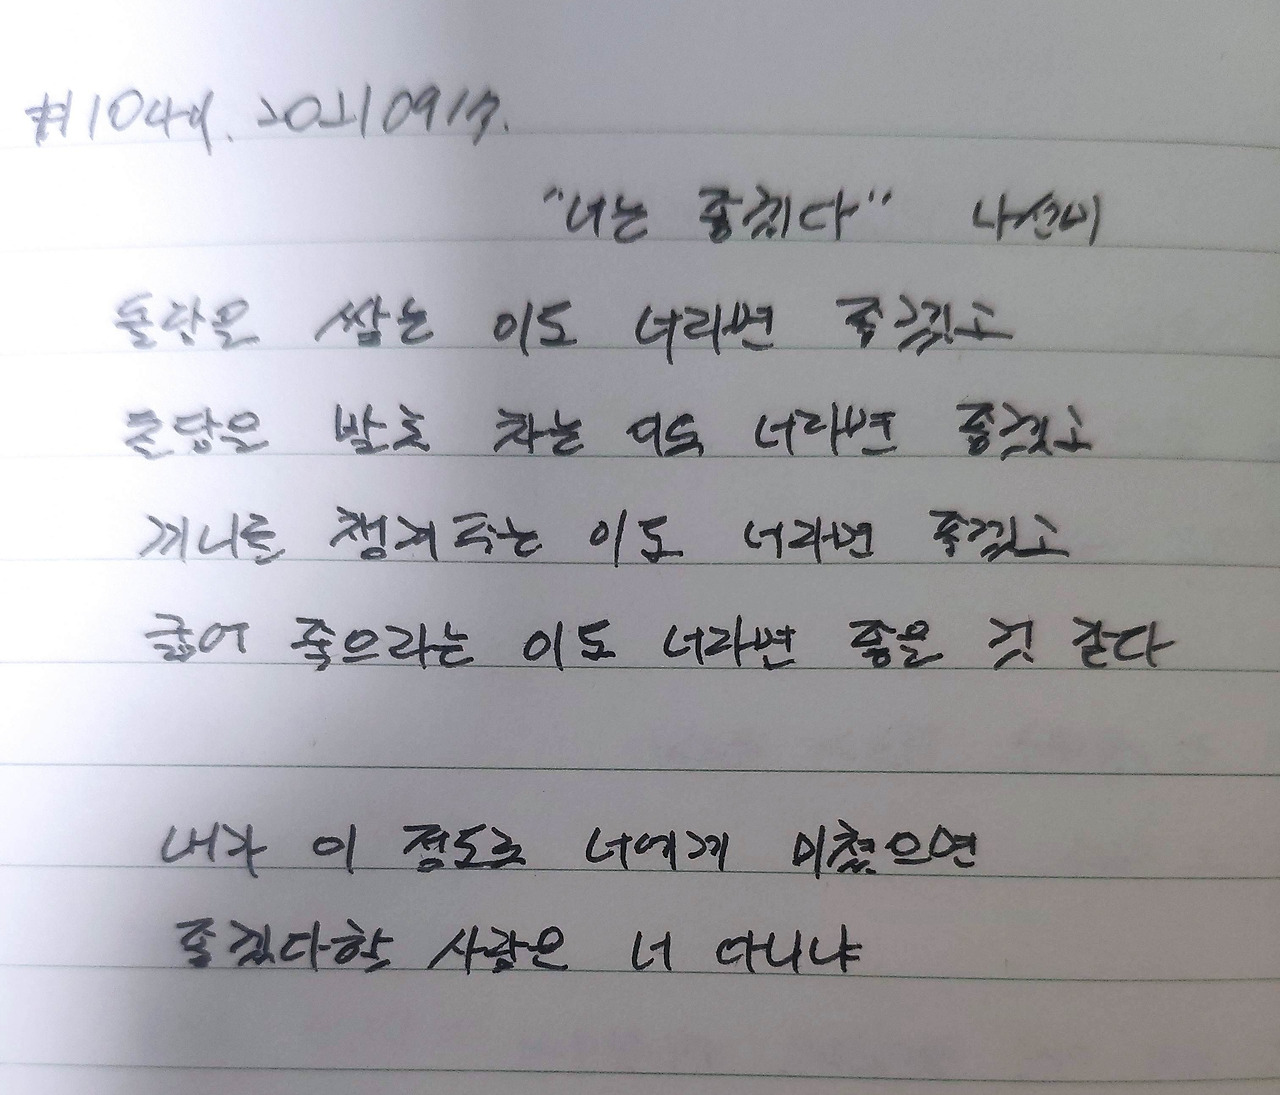 #104일. 20210917.
"너는 좋겠다" 나선비
돌담을 쌓는 이도 너라면 좋겠고
돌담을 발로 차는 이도 너라면 좋겠고
끼니를 챙겨주는 이도 너라면 좋겠고
굶어 죽으라는 이도 너라면 좋을 것 같다
내가 이 정도로 너에게 미쳤으면
좋겠다할 사람은 너 아니냐